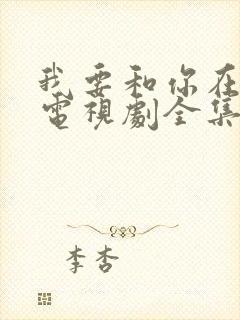 我要和你在
電視劇全集
李杏